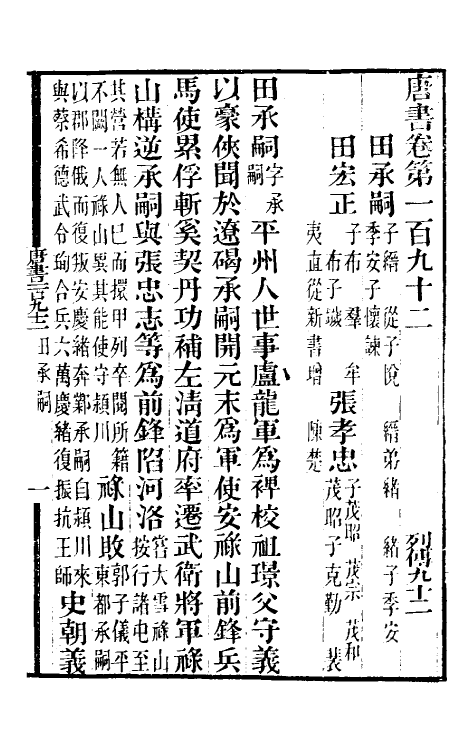 唐書卷第一百九十二 列傳九十二
田承嗣 子縉 從子悅 縉弟緒 緒子季安
季安子懷諫
田宏正 子布 羣 牟
布子
張孝忠 子茂昭 茂宗 茂和
茂昭子克勤 裴
夷直從新書增 陳楚
田承嗣 字承嗣 平州人世事盧龍軍爲裨校祖璟父守義
以豪俠聞於遼碣承嗣開元末爲軍使安祿山前鋒兵
馬使累俘斬奚契丹功補左淸道府率遷武衛將軍祿
山構逆承嗣與張忠志等爲前鋒陷河洛 嘗大雪祿山
按行諸屯至
其營若無人已而擐甲列卒閱所籍
不闕一人祿山異其能使守潁川
祿山敗 郭子儀平
東都承嗣
以郡降俄而復叛安慶緒奔鄴承嗣自潁川來
與蔡希德武令珣合兵六萬慶緒復振抗王師
史朝義
唐書一百九十二 田承嗣 一